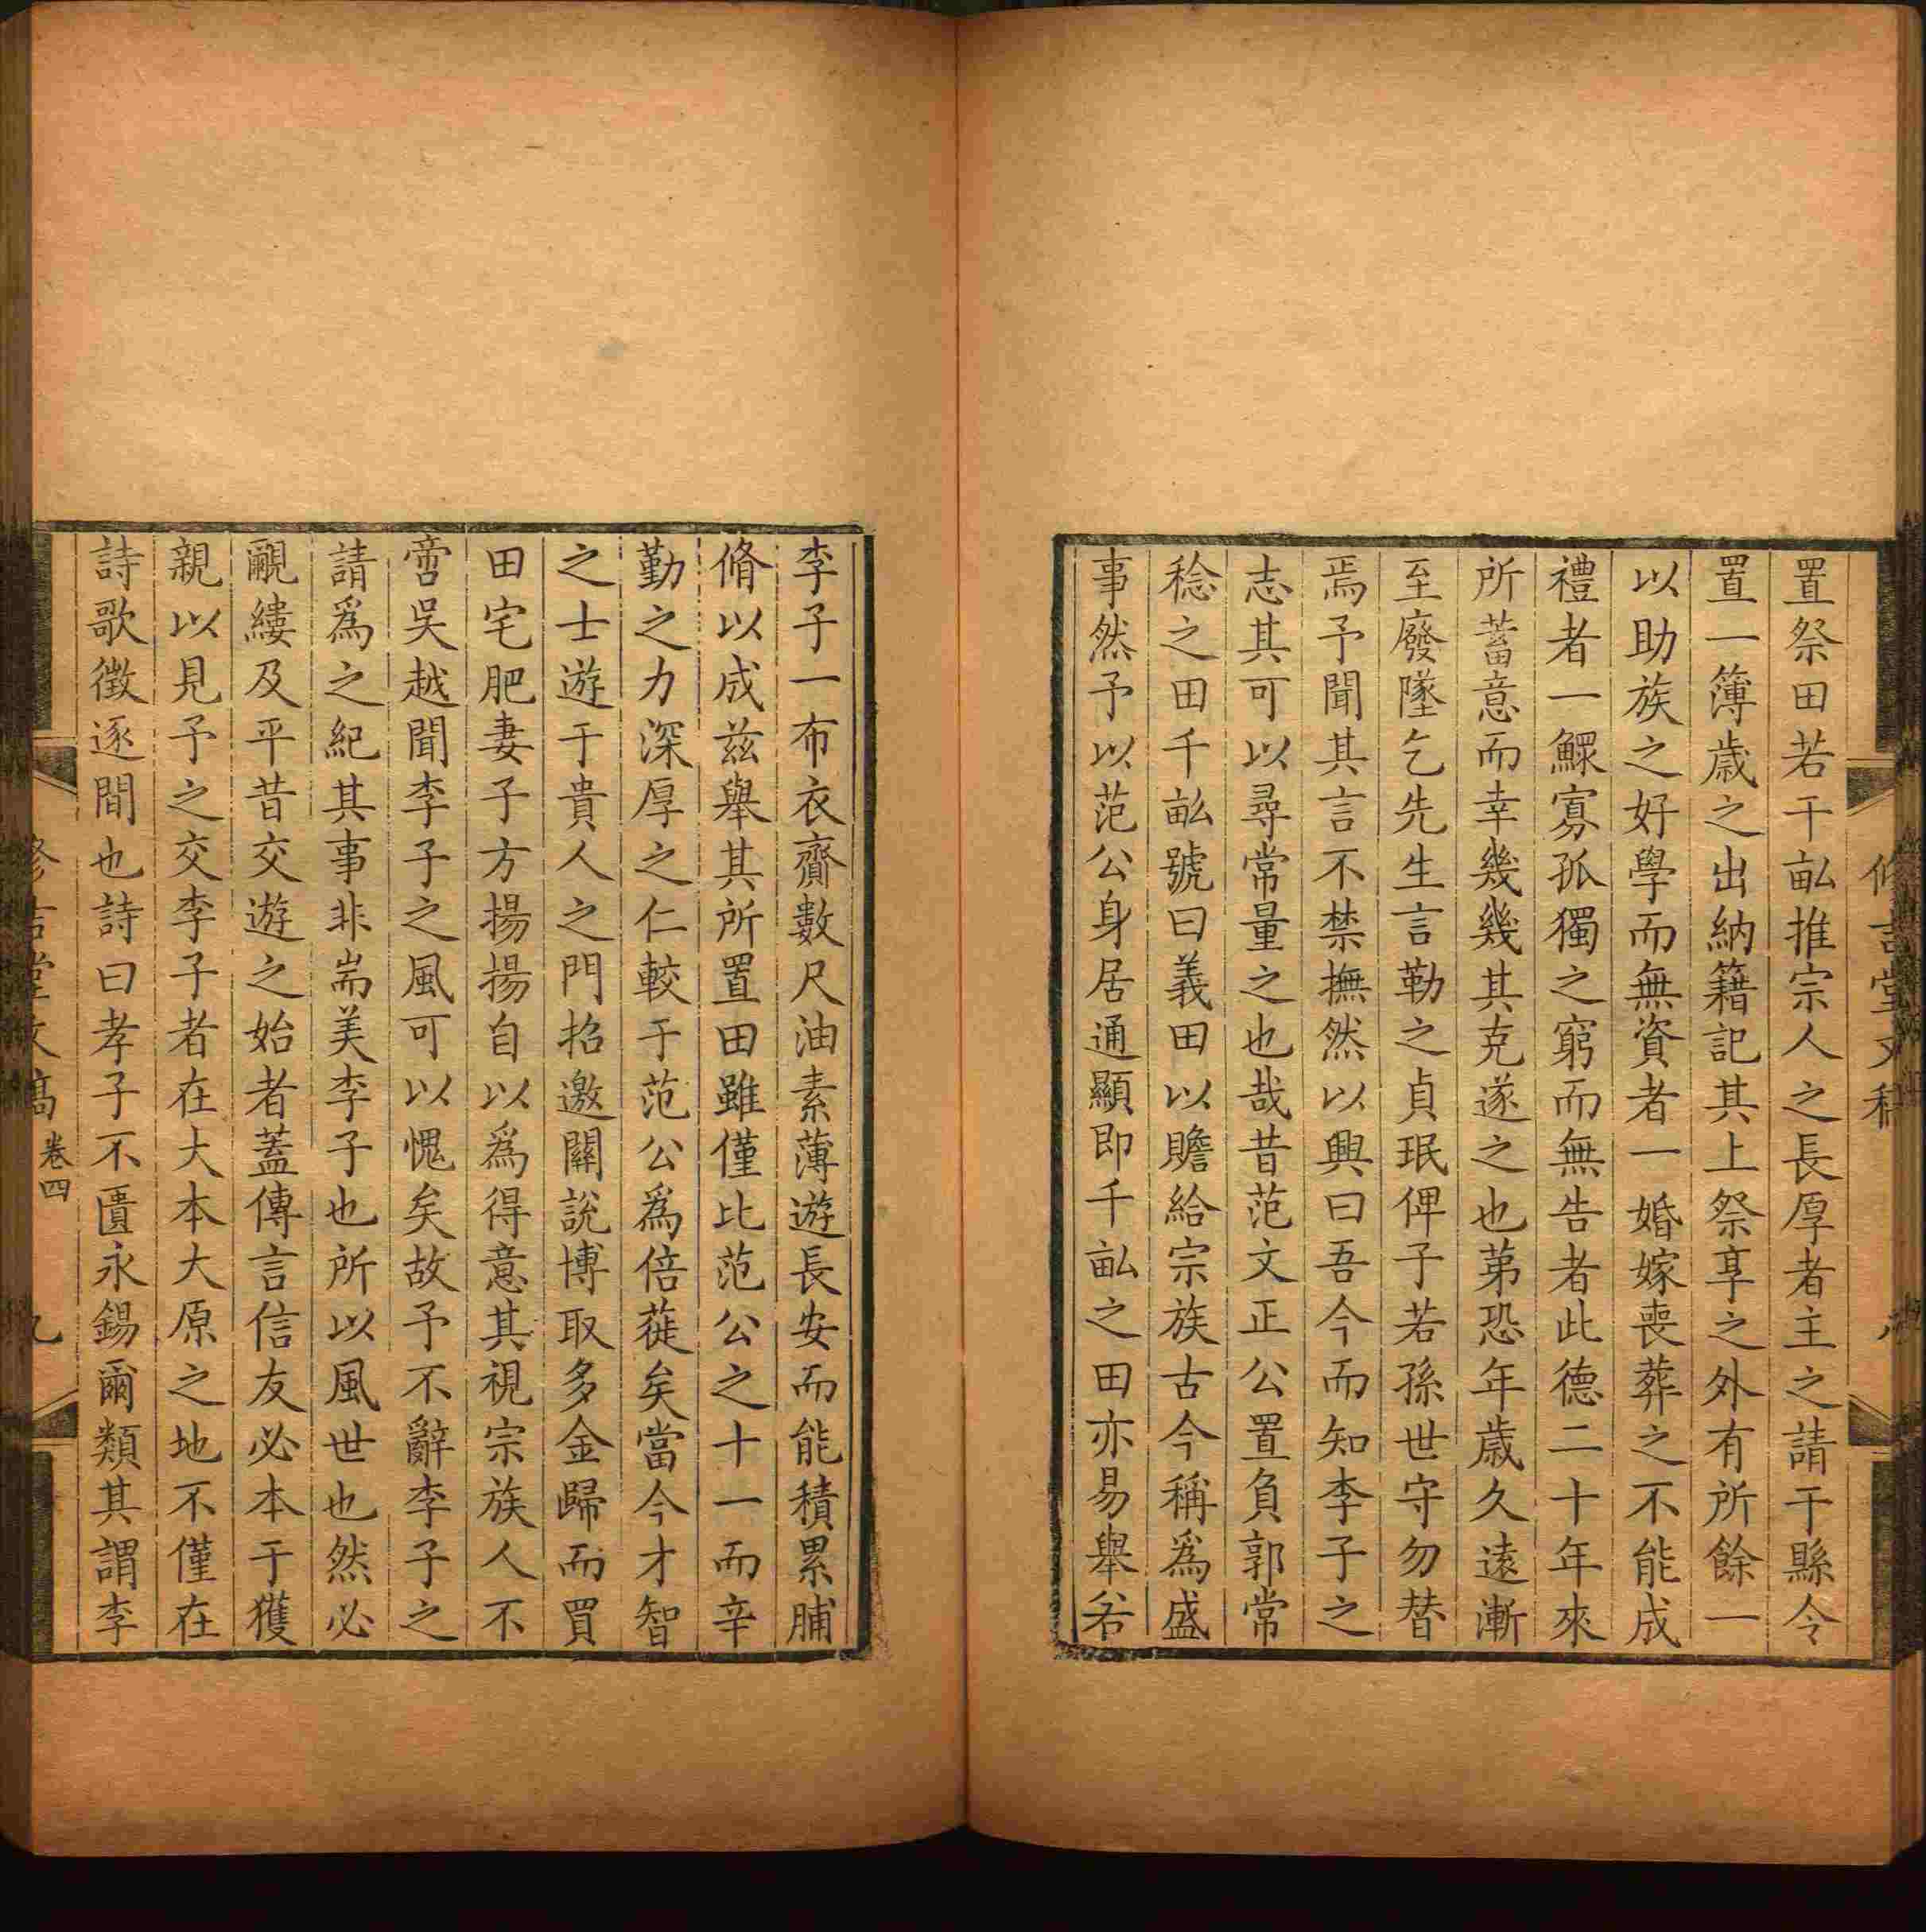 置祭田若干畝推宗人之長厚者主之請于縣令
置一簿歲之出納籍記其上祭享之外有所餘一
以助族之好學而無資者一婚嫁喪葬之不能成
禮者一鰥寡孤獨之窮而無告者此德二十年來
所蓄意而幸幾幾其克遂之也苐恐年歲久遠漸
至廢墜乞先生言勒之貞珉俾子若孫世守勿替
焉予聞其言不禁撫然以興曰吾今而知李子之
志其可以尋常量之也哉昔范文正公置負郭常
稔之田千畝號曰義田以贍給宗族古今稱為盛
事然予以范公身居通顯即千畝之田亦易舉若
李子一布衣齎數尺油素薄遊長安而能積累脯
脩以成茲舉其所置田雖僅比范公之十一而辛
勤之力深厚之仁較于范公為倍蓰矣當今才智
之士遊于貴人之門招邀關說博取多金歸而買
田宅肥妻子方揚揚自以為得意其視宗族人不
啻吳越聞李子之風可以愧矣故予不辭李子之
請為之紀其事非耑美李子也所以風世也然必
覼縷及平昔交遊之始者蓋傳言信友必本于獲
親以見予之交李子者在大本大原之地不僅在
詩歌徵逐間也詩曰孝子不匱永錫爾類其謂李
卷四
九